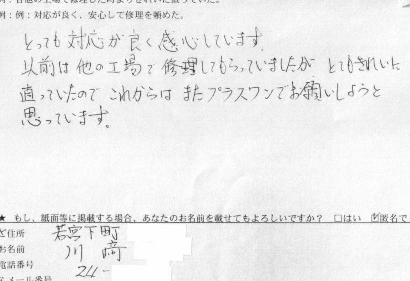 例：例：対応が良く、安心して修理を頼めた。
とっても対応が良く感心しています。
以前は他の工場で修理してもらっていましたが とてもきれいに
直っていたので これからは またプラスワンでお願いしようと
思っています。
★ もし、紙面等に掲載する場合、あなたのお名前を載せてもよろしいですか？ □はい ☑匿名で
ご住所 若宮下町
お名前 川﨑
電話番号 24-
メール番号